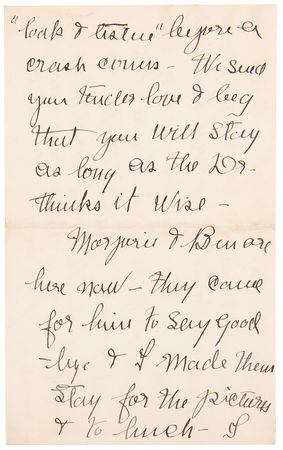 "look & listen" before a
crash comes - We send
you tender love & beg
that you will stay
as long as the Dr.
thinks it wise -
Marjorie & Ben are
here now - they came
for him to say good
-bye & I made them
stay for the pictures
& to lunch - I